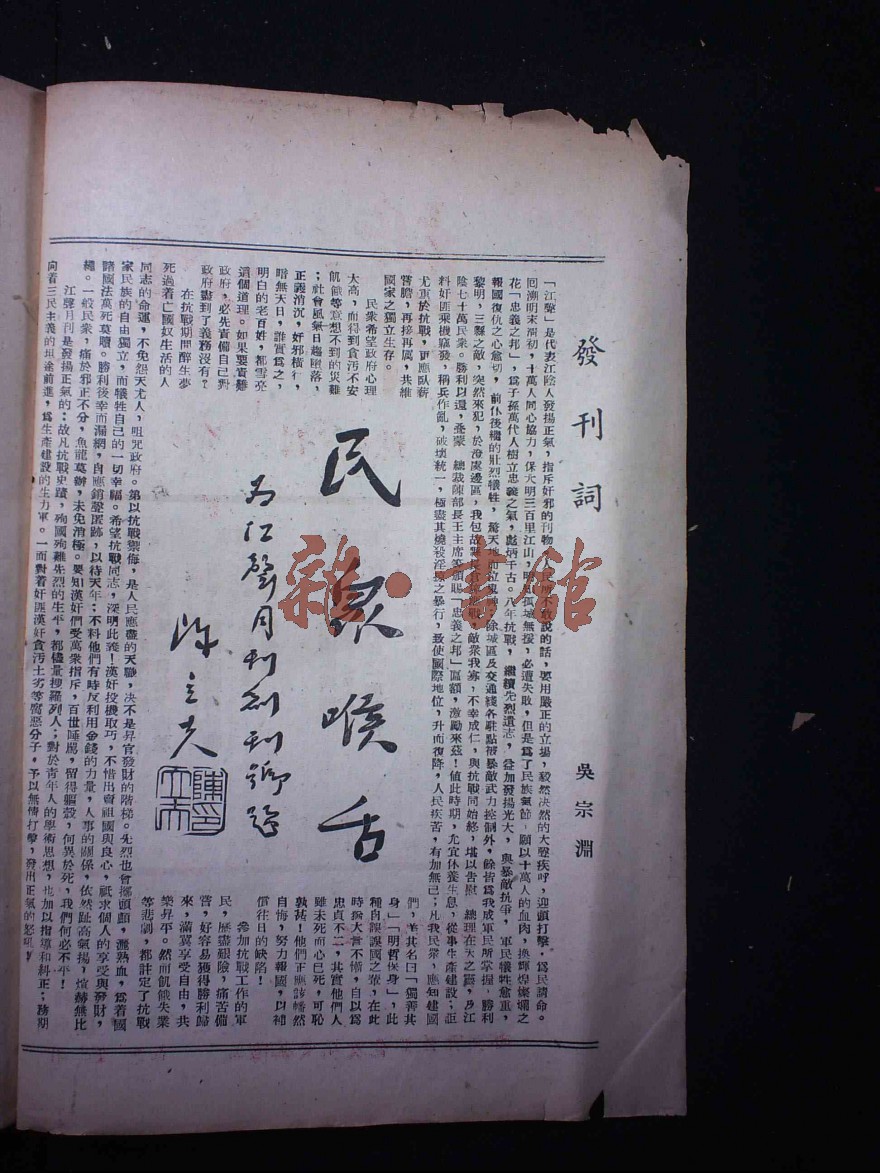 發刊詞
吳宗淵
「江聲」是代表江陰人發揚正氣,指斥奸邪的刊物,人民所不敢說的話,要用嚴正的立塲,毅然決然的大聲疾呼,迎頭打擊,爲民請命。
回溯明末淸初,十萬人同心協力,保大明三百里江山,明知孤城無援,必遭失敗,但是爲了民族氣節,願以十萬人的血肉,換輝煌燦爛之
花「忠義之邦」,爲子孫萬代人樹立忠義之氣,彪炳千古。八年抗戰,繼續先烈遺志,益加發揚光大,與暴敵抗爭,軍民犧牲愈重,
報國復仇之心愈切,前仆後繼的壯烈犧牲,驚天地而泣鬼神;除城區及交通綫各駐點被暴敵武力控制外,餘皆爲我成軍民所掌握,勝利
黎明,三縣之敵,突然來犯,於澄虞邊區,我包故縣長
敵衆我寡,不幸成仁,與抗戰同始終,堪以告慰 總理在天之靈,及江
陰七十萬民衆。勝利以還,叠蒙 總裁陳部長王主席等頒賜「忠義之邦」匾額,激勵來玆!値此時期,允宜休養生息,從事生產建設;詎
料奸匪乘機竄發,稱兵作亂,破壞統一,極盡其燒殺淫掠之暴行,致使國際地位,升而復降,人民疾苦,有加無已;凡我民衆,應知建國
尤重於抗戰,更應臥薪
嘗膽,再接再厲,共維
國家之獨立生存。
民衆希望政府心理
太高,而得到貪污不安
飢餓等意想不到的災難
;社會風氣日趨墮落,
正義消沉,奸邪橫行,
暗無天日,誰實爲之,
明白的老百姓,都雪亮
這個道理。如果要責難
政府,必先責備自己對
政府盡到了義務沒有?
在抗戰期間醉生夢
死過着亡國奴生活的人
民衆喉舌
爲江聲月刊創刊號題
陳立夫
陳立夫印
們,美其名曰「獨善其
身」「明哲保身」,此
種自誤誤國之輩,在此
時猶大言不慚,自以爲
忠貞不二,其實他們人
雖未死而心已死,可恥
孰甚!他們正應該幡然
自悔,努力報國,以補
償往日的缺陷!
參加抗戰工作的軍
民,歷盡艱險,痛苦備
嘗,好容易獲得勝利歸
來,滿冀享受自由,共
樂昇平。然而飢餓失業
等悲劇,都註定了抗戰
同志的命運,不免怨天尤人,咀咒政府。第以抗戰禦侮,是人民應盡的天職,決不是昇官發財的階梯。先烈也曾擲頭顱,灑熱血,爲着國
家民族的自由獨立,而犧牲自己的一切幸福。希望抗戰同志,深明此義!漢奸投機取巧,不惜出賣祖國與良心,祇求個人的享受與發財,
諸國法萬死莫贖。勝利後幸而漏網,自應銷聲匿跡,以待天年;不料他們有時反利用金錢的力量,人事的關係,依然趾高氣揚,煊赫無比
。一般民衆,痛於邪正不分,魚龍莫辦,未免消極。要知漢奸們受萬衆指斥,百世唾罵,留得軀殼,何異於死,我們何必不平!
江聲月刊是發揚正氣的;故凡抗戰史蹟,殉國殉難先烈的生平,都儘量搜羅列入;對於靑年人的學術思想,也加以指導和糾正;務期
向着三民主義的坦途前進,爲生產建設的生力軍。一面對着奸匪漢奸貪污土劣等腐惡分子,予以無情打擊,發出正氣的怒吼!
雜·書館